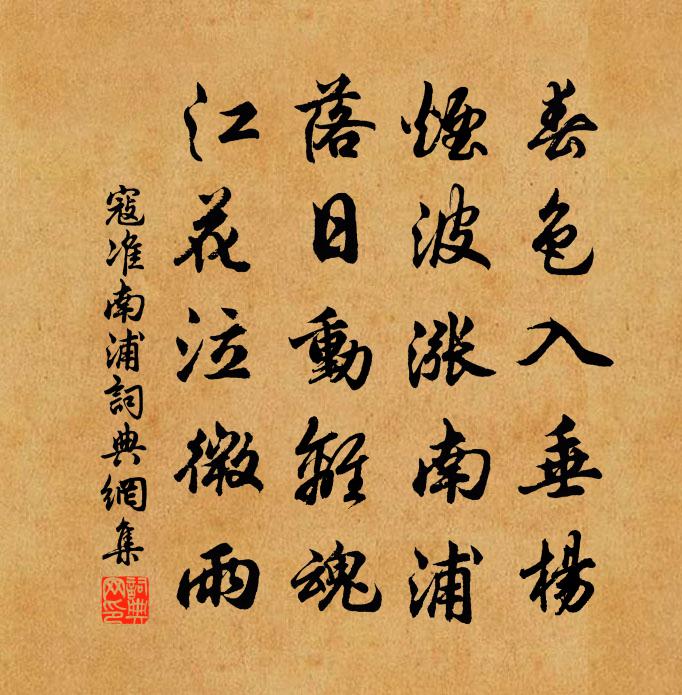 春色入垂楊
煙波漲南浦
落日動離魂
江花泣微雨
寇准南浦詞典網集
詞典網印